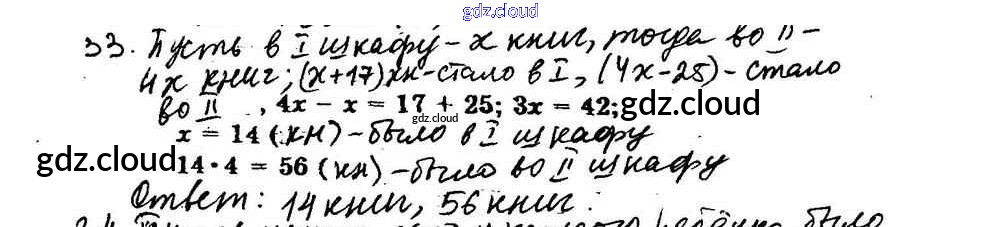 gdz.cloud
33. Пусть в I шкафу - x книг, тогда во II -
4x книг; (x+17) кн - стало в I, (4x-25) - стало
во II, 4x - x = 17 + 25; 3x = 42; gdz.cloud
gdz.cloud
x = 14 (кн) - было в I шкафу
gdz.cloud 14 · 4 = 56 (кн) - было во II шкафу
Ответ: 14 книг, 56 книг.
было